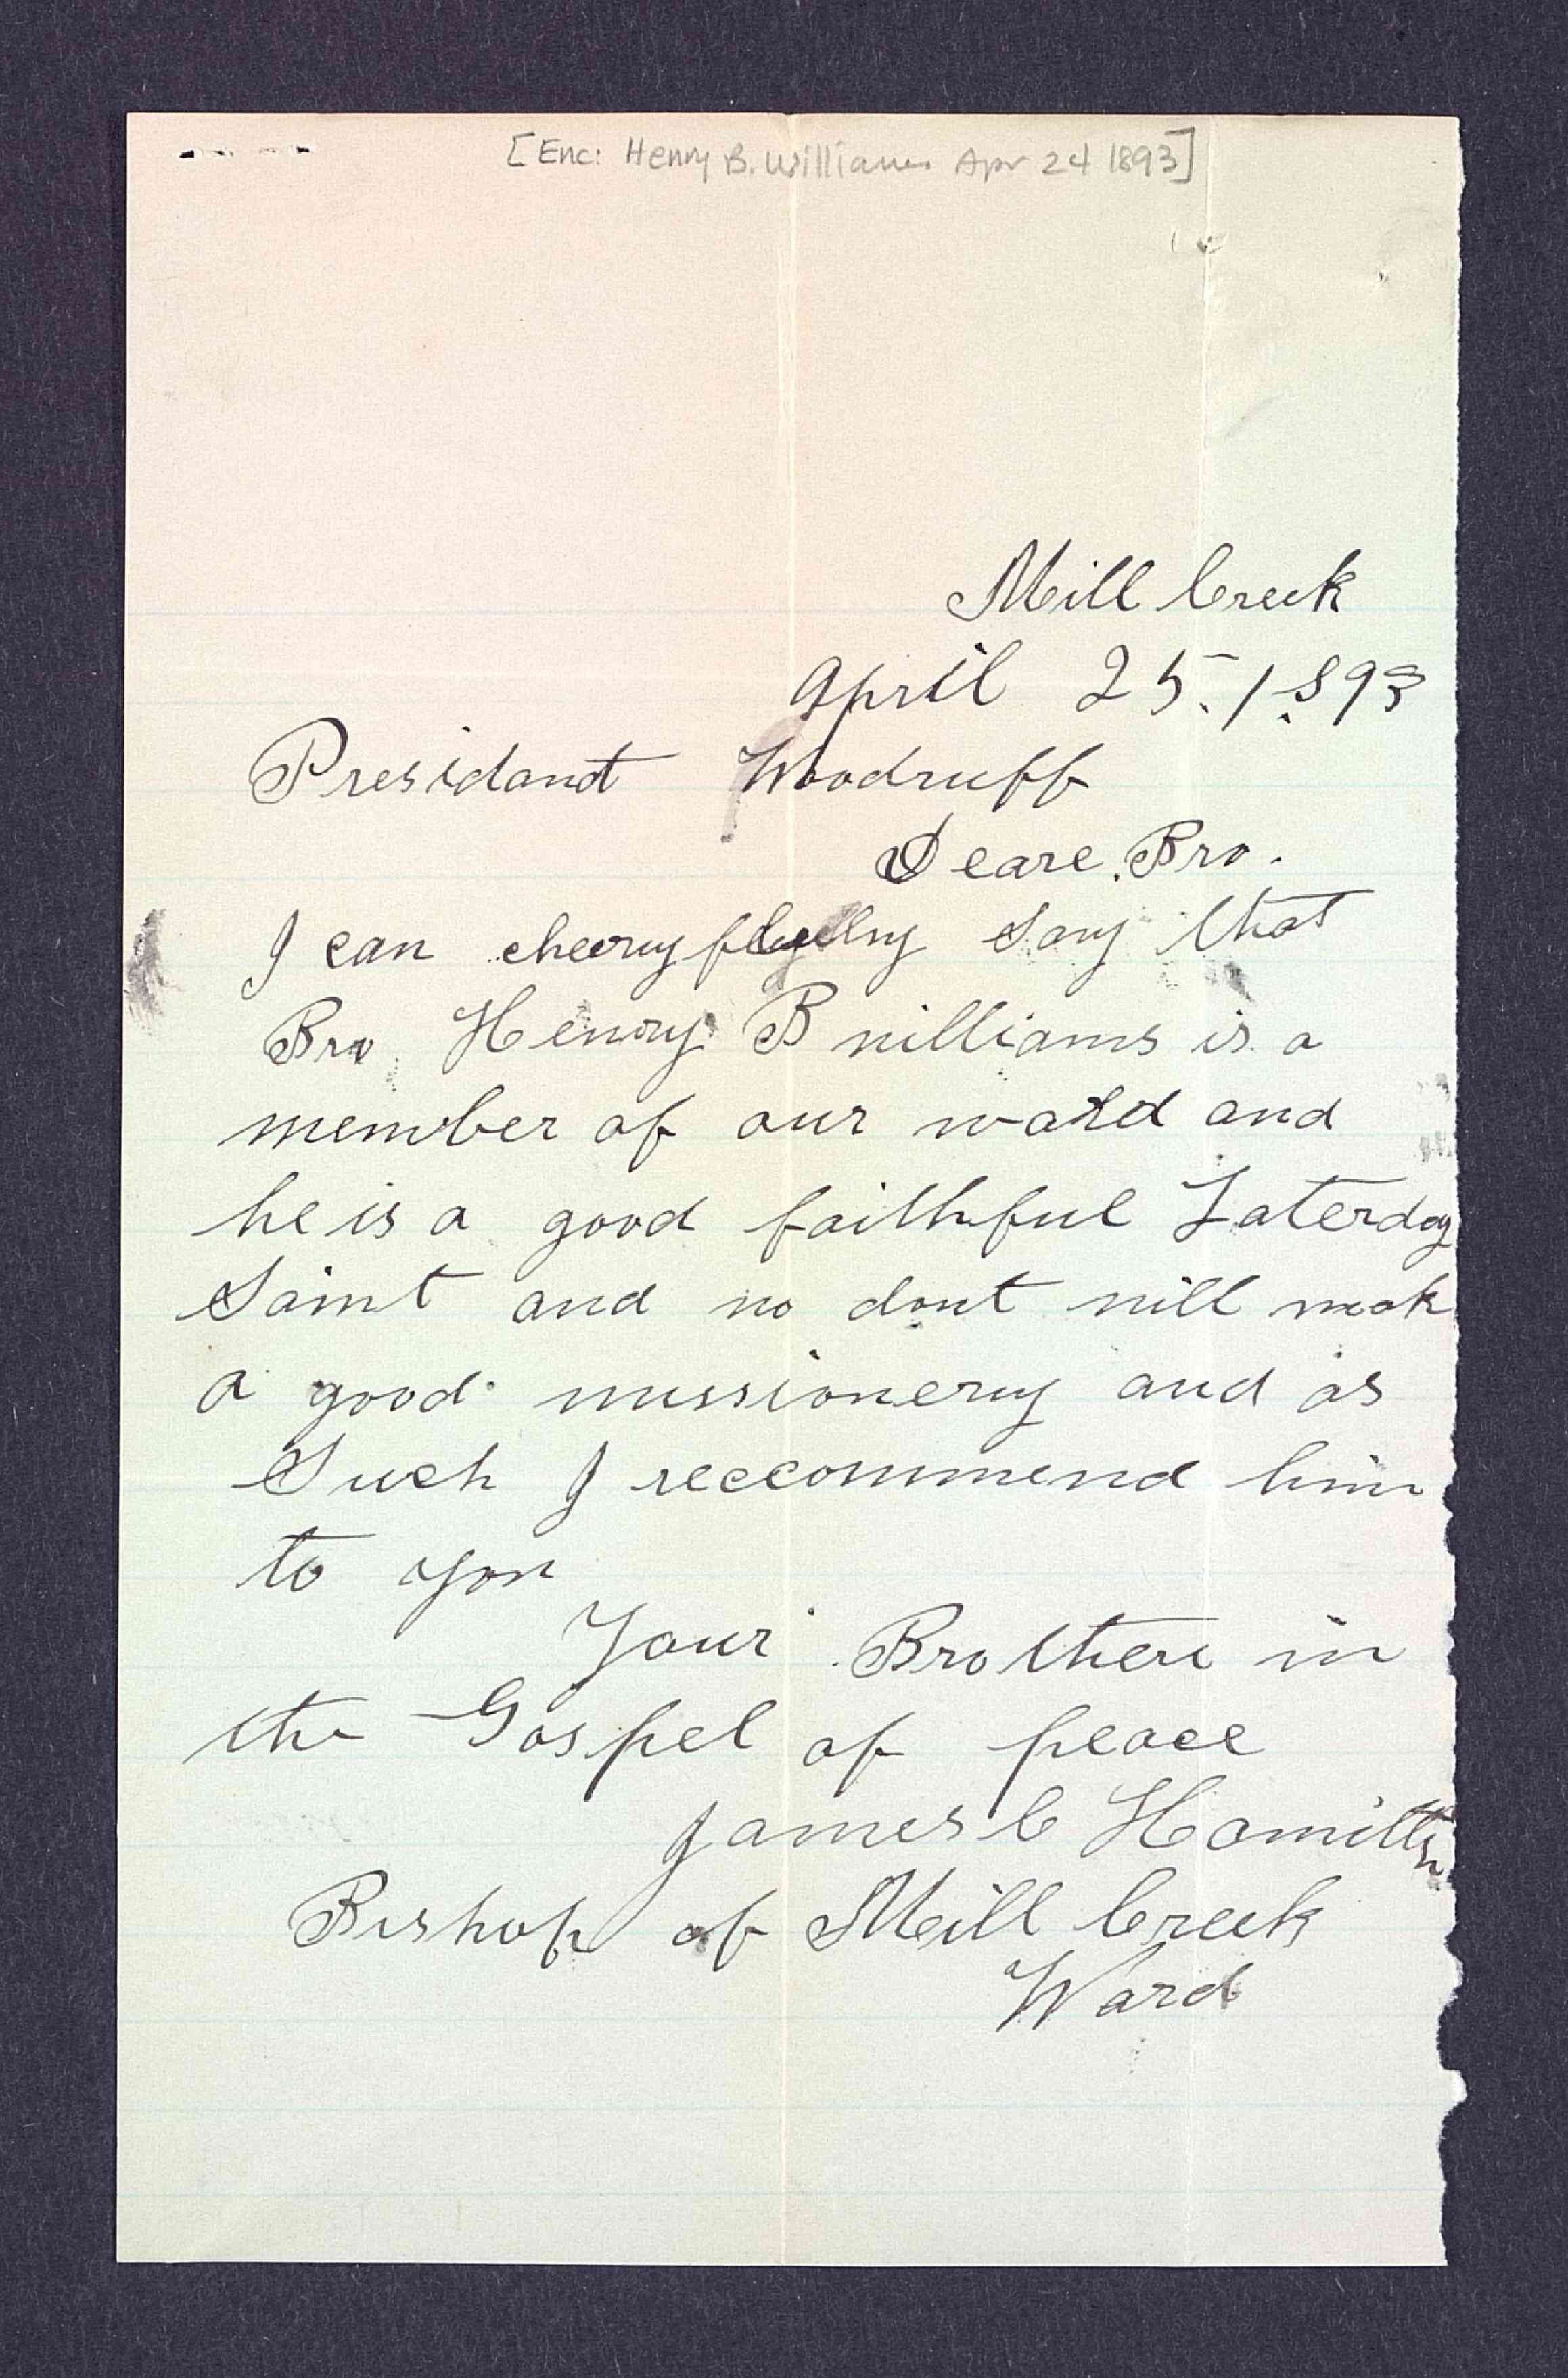 [Enc: Henry B. Williams Apr 24 1893]
Mill Creek
April 25. 1893
Presidant Woodruff
Deare. Bro.
I can say that
Bro Henry B williams is a
member of our ward and
he is a good faithful Laterday
Saint and no dout will mak
a good missionery and as
Such I reccommend him
to you
Your Brothere in
the Gospel of peace
James C Hamilton
Bishop of Mill Creek
Ward